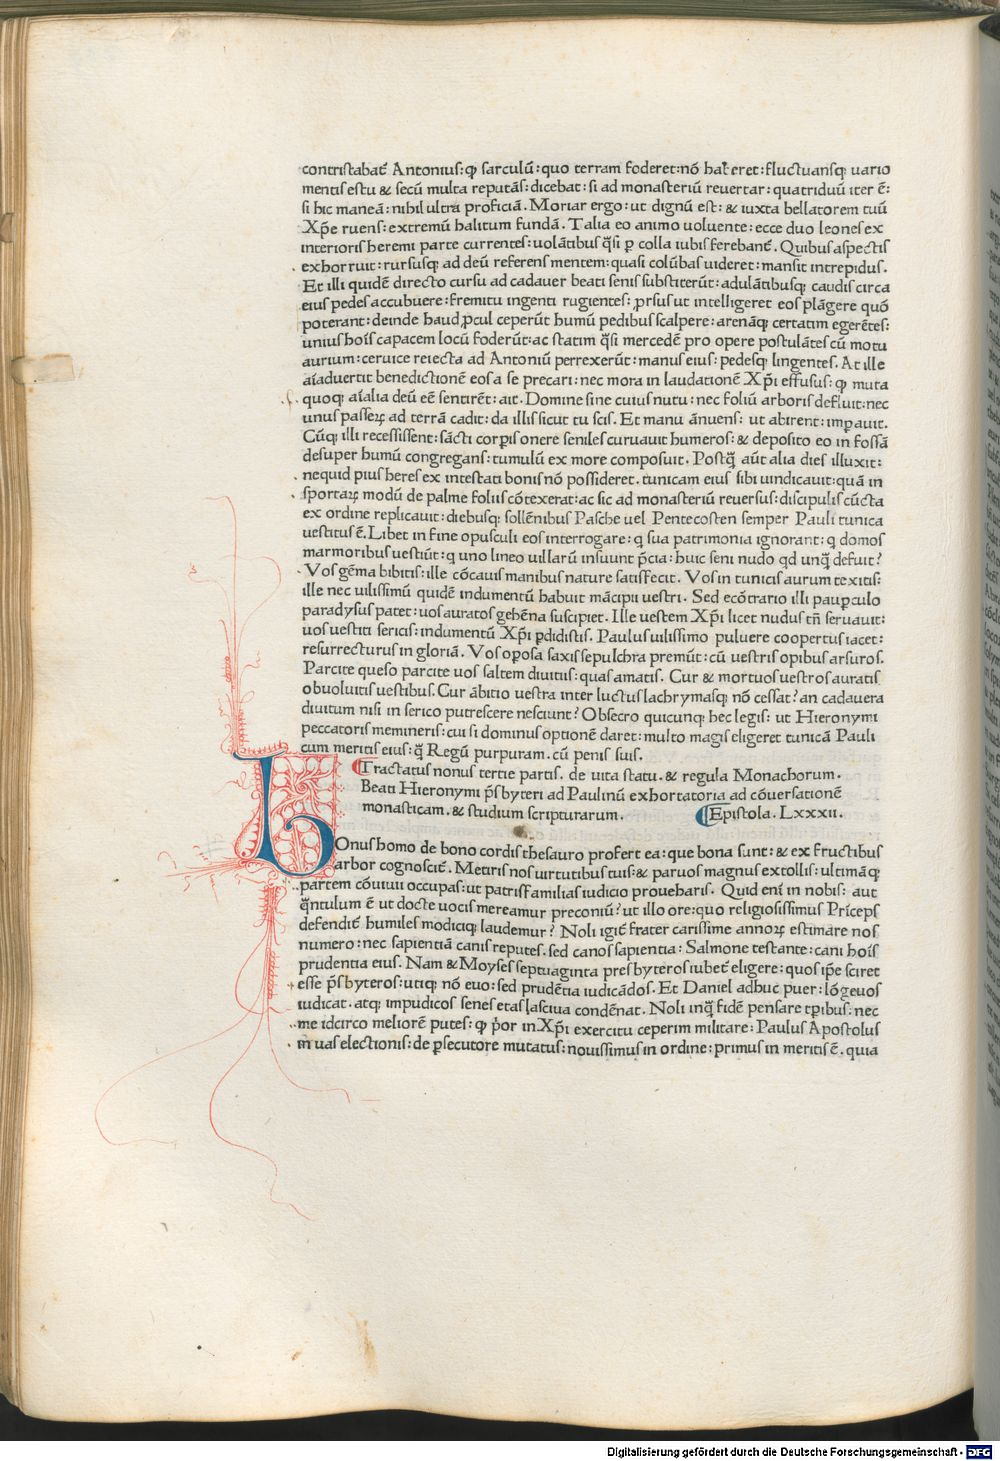 contristabat̄ Antonius: ꝙ sarculū: quo terram foderet: nō haberet: fluctuansq; uario
mentis estu & secū multa reputās: dicebat: si ad monasteriū reuertar: quatriduū iter ē:
si hic maneā: nihil ultra proficiā. Moriar ergo: ut dignū est: & iuxta bellatorem tuū
Xp̄e ruens: extremū halitum fundā. Talia eo animo uoluente: ecce duo leones ex
interioris heremi parte currentes: uolātibus q̄si ꝑ colla iubis ferebant̄. Quibus aspectis
exhorruit: rursusq; ad deū referens mentem: quasi colūbas uideret: mansit intrepidus.
Et illi quidē directo cursu ad cadauer beati senis substiterūt: adulātibusq; caudis circa
eius pedes accubuere: fremitu ingenti rugientes: ꝓrsus ut intelligeret eos plāgere quō
poterant: deinde haud ꝓcul ceperūt humū pedibus scalpere: arenāq; certatim egerētes:
unius hoīs capacem locū foderūt: ac statim q̄si mercedē pro opere postulātes cū motu
aurium: ceruice reiecta ad Antoniū perrexerūt: manus eius: pedesq; lingentes. At ille
aīaduertit benedictionē eos a se precari: nec mora in laudationē Xp̄i effusus: ꝙ muta
quoq; aīalia deū eē sentirēt: ait. Domine sine cuius nutu: nec foliū arboris defluit: nec
unus passeꝝ ad terrā cadit: da illis sicut tu scis. Et manu ānuens: ut abirent: imꝑauit.
Cūq; illi recessissent: sācti corꝑis onere seniles curuauit humeros: & deposito eo in fossā
desuper humū congregans: tumulū ex more composuit. Postq̄ aūt alia dies illuxit:
nequid pius heres ex intestati bonis nō possideret. tunicam eius sibi uindicauit: quā in
sportaꝝ modū de palme foliis cōtexerat: ac sic ad monasteriū reuersus: discipulis cūcta
ex ordine replicauit: diebusq; sollēnibus Pasche uel Pentecosten semper Pauli tunica
uestitus ē. Libet in fine opusculi eos interrogare: q sua patrimonia ignorant: q domos
marmoribus uestiūt: q uno lineo uillarū insuunt p̄cia: huic seni nudo qd unq̄ defuit?
Vos gēma bibitis: ille cōcauis manibus nature satisfecit. Vos in tunicis aurum texitis:
ille nec uilissimū quidē indumentū habuit mācipii uestri. Sed ecōtrario illi pauꝑculo
paradysus patet: uos auratos gehēna suscipiet. Ille uestem Xp̄i licet nudus tn̄ seruauit:
uos uestiti sericis: indumentū Xp̄i ꝑdidistis. Paulus uilissimo puluere coopertus iacet:
resurrecturus in gloriā. Vos oꝑosa saxis sepulchra premūt: cū uestris opibus arsuros.
Parcite queso parcite uos saltem diuitiis: quas amatis. Cur & mortuos uestros auratis
obuoluitis uestibus. Cur ābitio uestra inter luctus lachrymasq; nō cessat? an cadauera
diuitum nisi in serico putrescere nesciunt? Obsecro quicunq; hec legis: ut Hieronymi
peccatoris memineris: cui si dominus optionē daret: multo magis eligeret tunicā Pauli
cum meritis eius: q̄ Regū purpuram. cū penis suis.
Tractatus nonus tertie partis. de uita statu. & regula Monachorum.
Beati Hieronymi p̄sbyteri ad Paulinū exhortatoria ad cōuersationē
monasticam. & studium scripturarum. Epistola. Lxxxii.
BOnus homo de bono cordis thesauro profert ea: que bona sunt: & ex fructibus
arbor cognoscit̄. Metiris nos uirtutibus tuis: & paruos magnus extollis: ultimāq;
partem cōuiuii occupas: ut patrisfamilias iudicio proueharis. Quid eni in nobis: aut
q̄ntulum ē ut docte uocis mereamur preconiū? ut illo ore: quo religiosissimus Prīceps
defendit̄ humiles modiciq; laudemur? Noli igit̄ frater carissime annoꝝ estimare nos
numero: nec sapientiā canis reputes. sed canos sapientia: Salmone testante: cani hoīs
prudentia eius. Nam & Moyses septuaginta presbyteros iubet̄ eligere: quos ip̄e sciret
esse p̄sbyteros: utiq; nō euo: sed prudētia iudicādos. Et Daniel adhuc puer: lōgeuos
iudicat. atq; impudicos senes etas lasciua condēnat. Noli inq̄ fidē pensare tꝑibus: nec
me idcirco meliorē putes: ꝙ p̄or in Xp̄i exercitu ceperim militare: Paulus Apostolus
in uas electionis: de ꝑsecutore mutatus: nouissimus in ordine: primus in meritis ē. quia
Digitalisierung gefördert durch die Deutsche Forschungsgemeinschaft - DFG